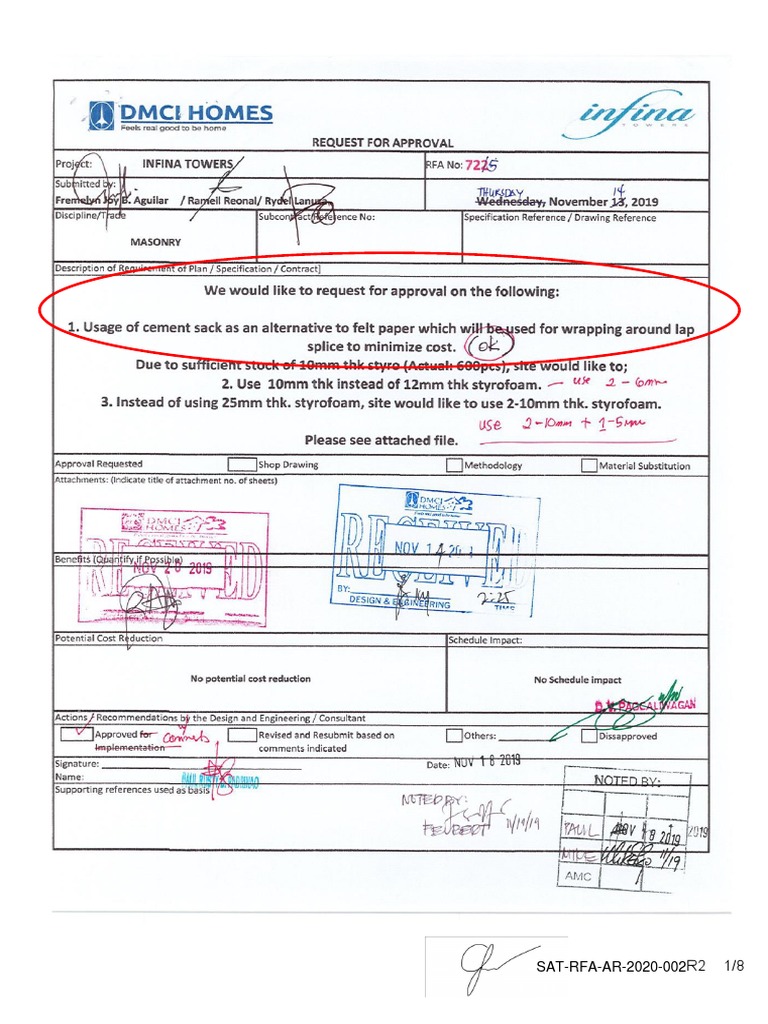 DMCI HOMES
Feels real good to be home
infina
TOWERS
REQUEST FOR APPROVAL
Project: INFINA TOWERS
RFA No: 7225
Submitted by:
Fremelyn Joy B. Aguilar / Ramell Reonal/ Rydel Lanuza
THURSDAY 14
Wednesday, November 13, 2019
Discipline/Trade
Subcontract/Reference No:
Specification Reference / Drawing Reference
MASONRY
Description of Requirement of Plan / Specification / Contract]
We would like to request for approval on the following:
1. Usage of cement sack as an alternative to felt paper which will be used for wrapping around lap
splice to minimize cost. OK
Due to sufficient stock of 10mm thk styro (Actual: 600pcs), site would like to;
2. Use 10mm thk instead of 12mm thk styrofoam. — use 2-6mm
3. Instead of using 25mm thk. styrofoam, site would like to use 2-10mm thk. styrofoam.
use 2-10mm + 1-5mm
Please see attached file.
Approval Requested
Shop Drawing
Methodology
Material Substitution
Attachments: (Indicate title of attachment no. of sheets)
DMCI HOMES
RECEIVED
NOV 28 2019
DMCI HOMES
RECEIVED
NOV 14 201
BY:
DESIGN & ENGINEERING
2:25
TIME
Benefits (Quantify if Possible)
Potential Cost Reduction
Schedule Impact:
No potential cost reduction
No Schedule impact
Actions / Recommendations by the Design and Engineering / Consultant
Approved for
Implementation
w/ comments
Revised and Resubmit based on
comments indicated
Others:
Disapproved
Signature:
Date: NOV 18 2019
Name:
Supporting references used as basis
NOTED BY:
11/19/19
NOTED BY:
PAUL NOV 18 2019 2019
MIKE 11/19
AMC
SAT-RFA-AR-2020-002R2 1/8